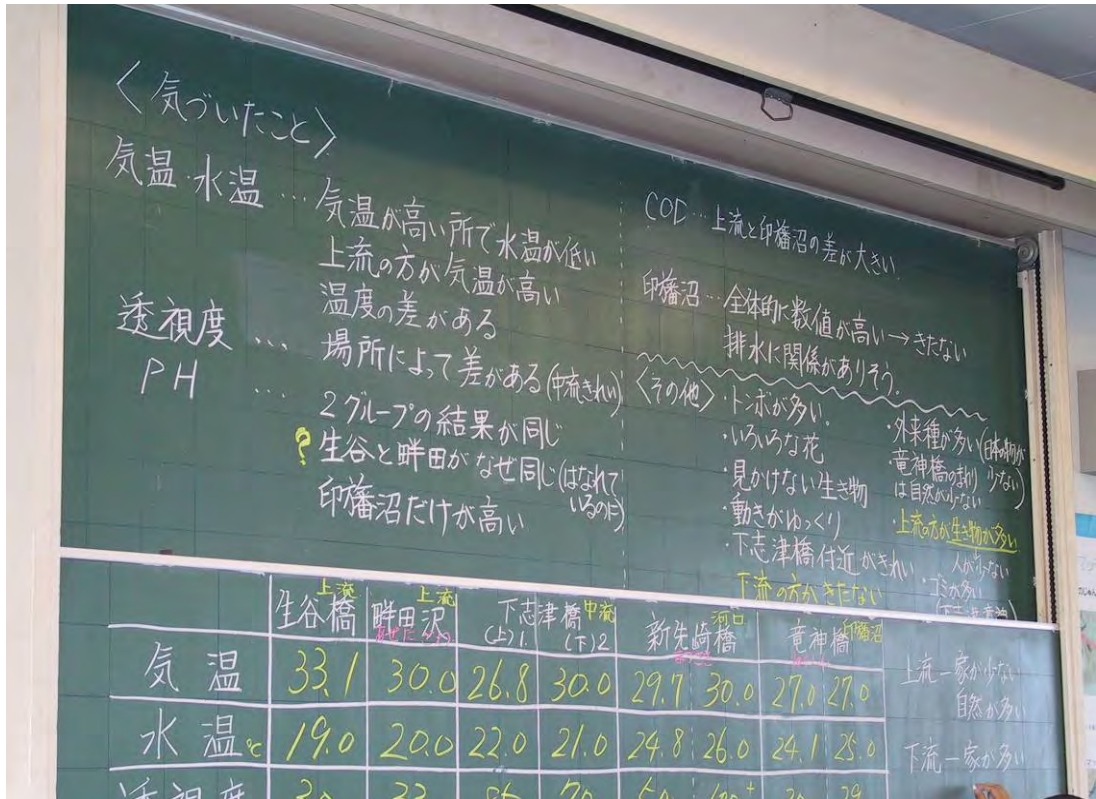 〈気づいたこと〉
気温・水温 … 気温が高い所で水温が低い
上流の方が気温が高い
温度の差がある
透視度 … 場所によって差がある(中流きれい)
PH … 2グループの結果が同じ
? 生谷と畔田がなぜ同じ(はなれて
いるのに)
印旛沼だけが高い
COD … 上流と印旛沼の差が大きい.
印旛沼 … 全体的に数値が高い→きたない
排水に関係がありそう.
〈その他〉・トンボが多い.
・いろいろな花
・見かけない生き物
・動きがゆっくり
・下志津橋付近がきれい
下流の方がきたない
・外来種が多い(日本の
少ない)
・竜神橋のまわり
は自然が少ない
・上流の方が生き物が多い
人が少ない
・ゴミが多い
上流 上流 中流 河口 印旛沼
生谷橋 畔田沢 下志津橋 新先崎橋 竜神橋
(上)1 (下)2
気温 33.1 30.0 26.8 30.0 29.7 30.0 27.0 27.0
水温℃ 19.0 20.0 22.0 21.0 24.8 26.0 24.1 25.0
透視度
上流―家が少ない
自然が多い
下流―家が多い